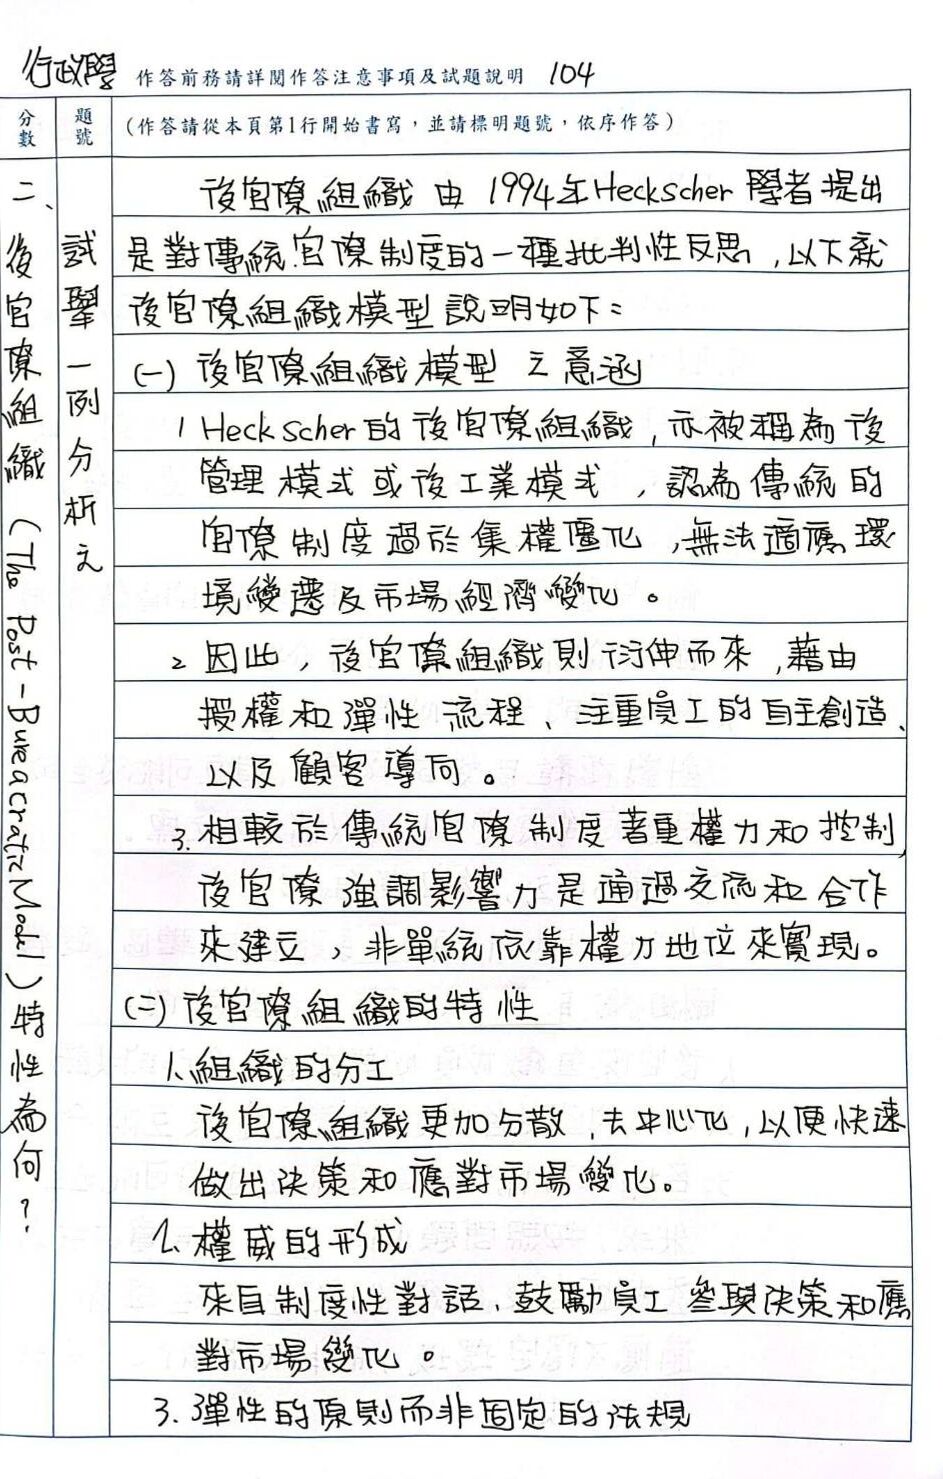 行政學 作答前務請詳閱作答注意事項及試題說明 104
分數 題號 (作答請從本頁第1行開始書寫，並請標明題號，依序作答)
二、後官僚組織（The Post-Bureacratic Model）特性為何？
試舉一例分析之
後官僚組織由1994年Heckscher學者提出
是對傳統官僚制度的一種批判性反思，以下就
後官僚組織模型說明如下：
(一)後官僚組織模型之意涵
1 Heckscher的後官僚組織，亦被稱為後
管理模式或後工業模式，認為傳統的
官僚制度過於集權僵化，無法適應環
境變遷及市場經濟變化。
2 因此，後官僚組織則衍伸而來，藉由
授權和彈性流程、注重員工的自主創造、
以及顧客導向。
3.相較於傳統官僚制度著重權力和控制，
後官僚強調影響力是通過交流和合作
來建立，非單純依靠權力地位來實現。
(二)後官僚組織的特性
1.組織的分工
後官僚組織更加分散，去中心化，以便快速
做出決策和應對市場變化。
2.權威的形成
來自制度性對話、鼓勵員工參與決策和應
對市場變化。
3.彈性的原則而非固定的法規